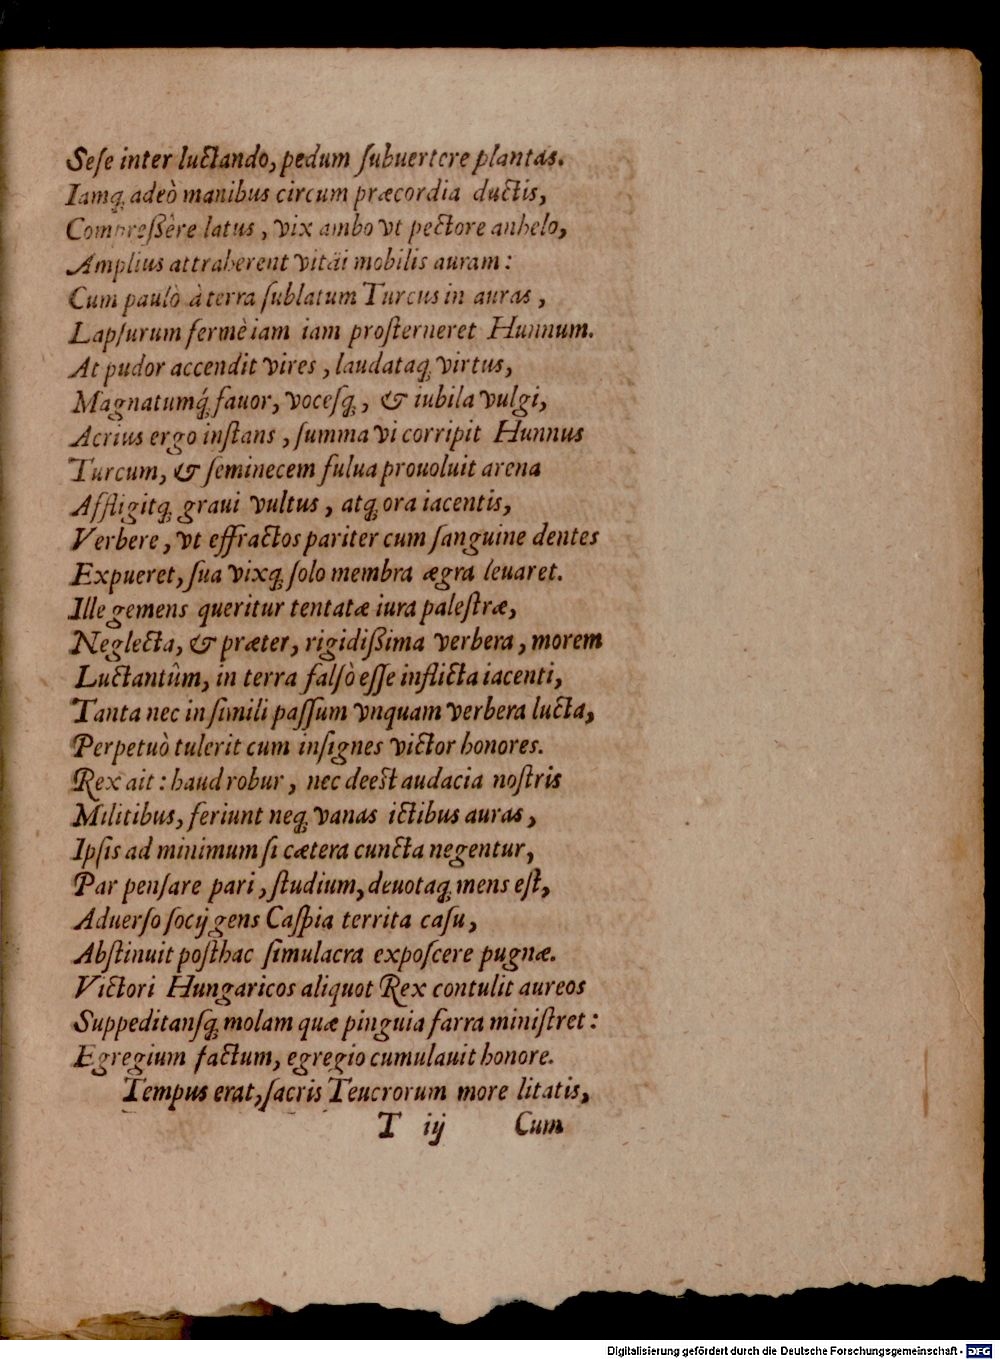 Seſe inter luctando, pedum ſubuertere plantas.
Iamq́; adeò manibus circum præcordia ductis,
Compreßêre latus, vix ambo vt pectore anhelo,
Ampliùs attraherent vitäi mobilis auram:
Cum paulò à terra ſublatum Turcus in auras,
Lapſurum fermè iam iam proſterneret Hunnum.
At pudor accendit vires, laudataq; virtus,
Magnatumq́; fauor, voceſq;, & iubila vulgi,
Acrius ergo inſtans, ſumma vi corripit Hunnus
Turcum, & ſeminecem fulua prouoluit arena
Affligitq; graui vultus, atq; ora iacentis,
Verbere, vt effractos pariter cum ſanguine dentes
Expueret, ſua vixq; ſolo membra ægra leuaret.
Ille gemens queritur tentatæ iura palestræ,
Neglecta, & præter, rigidißima verbera, morem
Luctantûm, in terra falſò eſſe inflicta iacenti,
Tanta nec in ſimili paſſum vnquam verbera lucta,
Perpetuò tulerit cum inſignes victor honores.
Rex ait: haud robur, nec deest audacia noſtris
Militibus, feriunt neq; vanas ictibus auras,
Ipſis ad minimum ſi cætera cuncta negentur,
Par penſare pari, ſtudium, deuotaq; mens eſt,
Aduerſo ſocij gens Caſpia territa caſu,
Abſtinuit poſthac ſimulacra expoſcere pugnæ.
Victori Hungaricos aliquot Rex contulit aureos
Suppeditanſq; molam quæ pinguia farra miniſtret:
Egregium factum, egregio cumulauit honore.
Tempus erat, ſacris Teucrorum more litatis,
T iij Cum
Digitalisierung gefördert durch die Deutsche Forschungsgemeinschaft - DFG